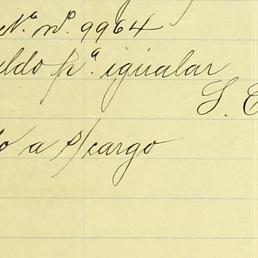 Nª nº 9964
ldo pª igualar
S. E
o a s/cargo